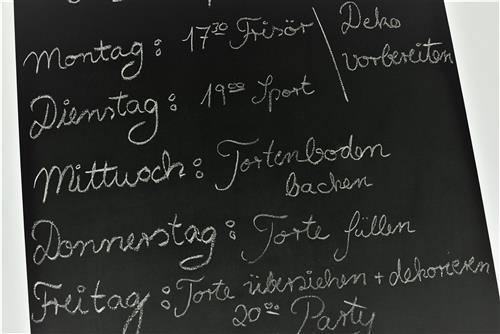 Montag: 17³⁰ Frisör | Deko
vorbereiten
Dienstag: 19⁰⁰ Sport
Mittwoch: Tortenboden
backen
Donnerstag: Torte füllen
Freitag: Torte überziehen + dekorieren
20⁰⁰ Party